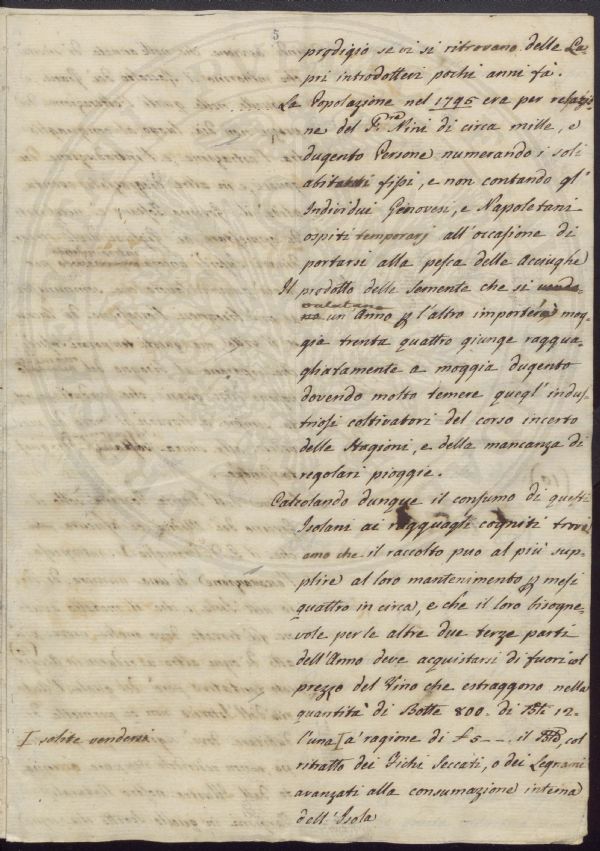 5
prodigio se vi si ritrovano delle La-
pri introdottevi pochi anni fà.
La Popolazione nel 1795 era per relazio-
ne del Nini di circa mille, e
dugento Persone numerando i soli
abitanti fissi, e non contando gl'
Individui Genovesi, e Napoletani
ospiti temporarj all'occasione di
portarsi alla pesca delle Acciughe
Il prodotto delle Semente che si vendo-
valutano
no un Anno p l'altro importerà mog-
gie trenta quattro giunge raggua-
gliatamente a moggia dugento
dovendo molto temere quegl'indus-
triosi coltivatori del corso incerto
delle Stagioni, e della mancanza di
regolari pioggie.
Calcolando dunque il consumo di questi
Isolani ai ragguagli cogniti trovi
amo che il raccolto può al più sup-
plire al loro mantenimento p mesi
quattro in circa, e che il loro bisogne-
vole per le altre due terze parti
dell'Anno deve acquistarsi di fuori col
prezzo del Vino che estraggono nella
quantità di Botte 800. di Bli 12-
I solite vendersi
l'una I a ragione di £5 — . il col
ritratto dei Fichi Seccati, o dei Legnami
avanzati alla consumazione interna
dell'Isola